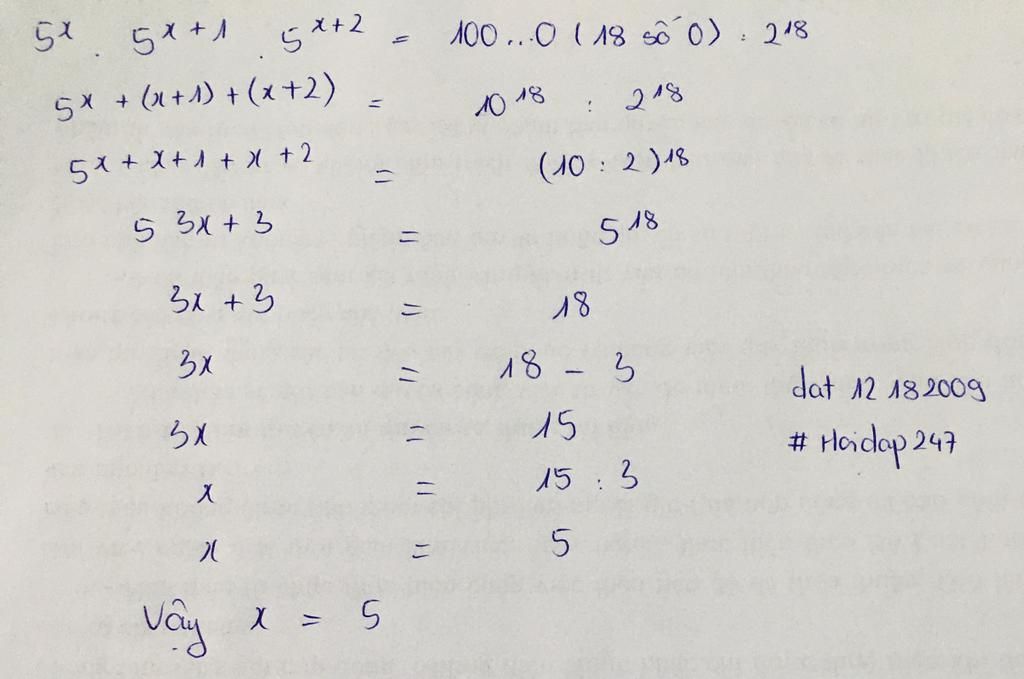 5ˣ . 5ˣ⁺¹ . 5ˣ⁺² = 100...0 (18 số 0) : 2¹⁸
5ˣ ⁺ ⁽ˣ⁺¹⁾ ⁺ ⁽ˣ⁺²⁾ = 10¹⁸ : 2¹⁸
5ˣ⁺ˣ⁺¹⁺ˣ⁺² = (10 : 2)¹⁸
5³ˣ⁺³ = 5¹⁸
3x + 3 = 18
3x = 18 - 3
3x = 15
x = 15 : 3
x = 5
Vậy x = 5
dat 12 18 2009
# Hoidap247